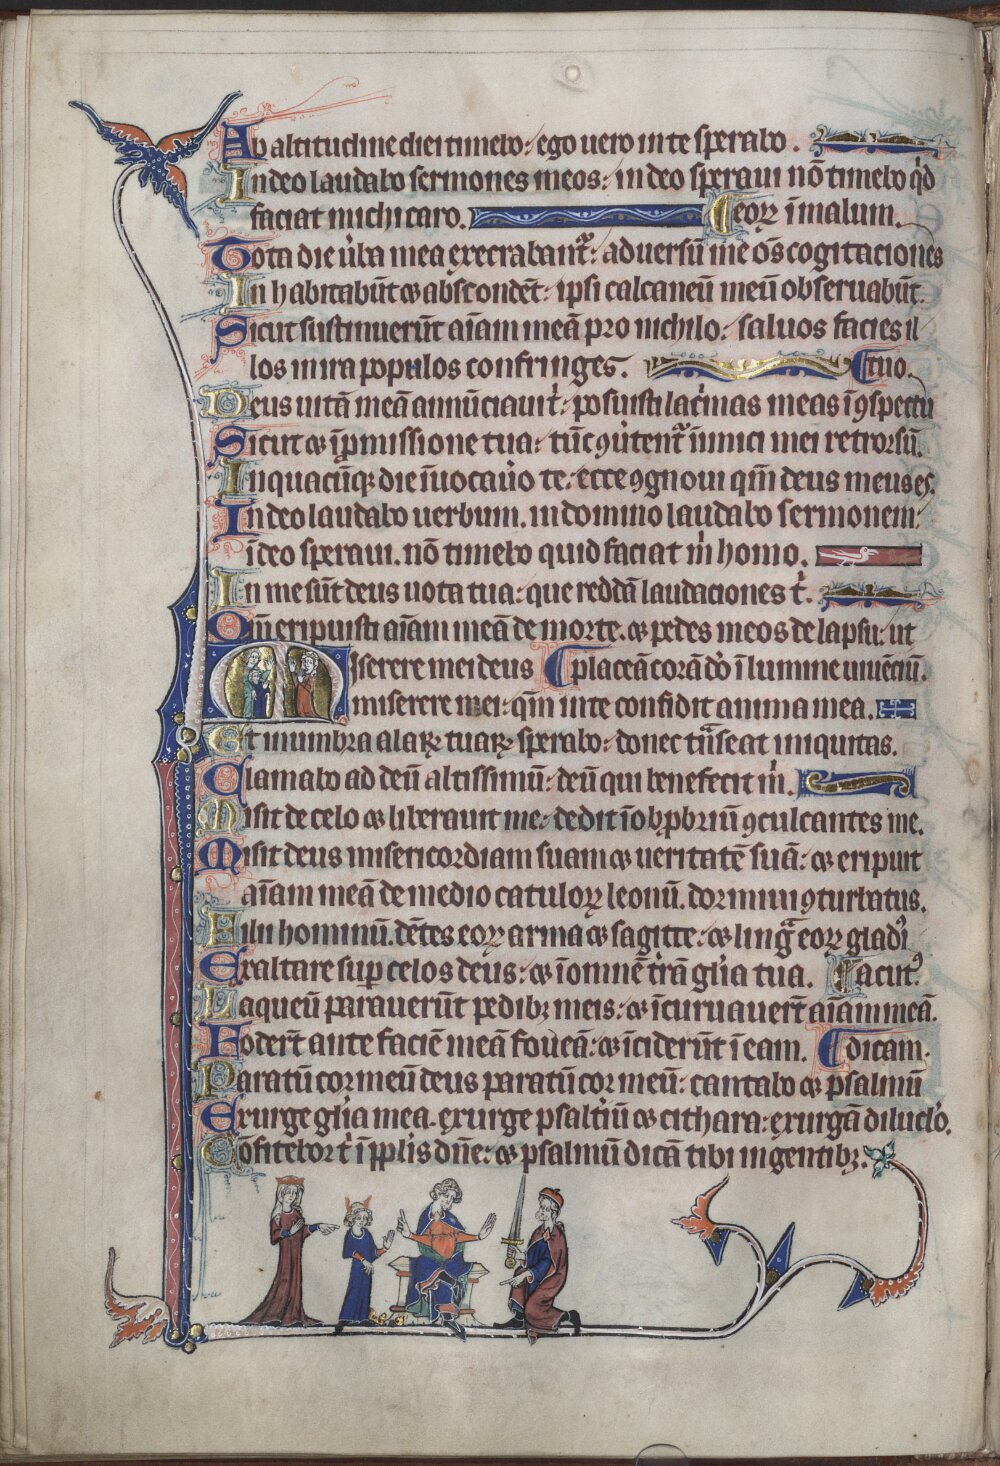 Ab altitudine diei timebo: ego uero in te sperabo.
In deo laudabo sermones meos: in deo speraui nō timebo qͥd
faciat michi caro. eoꝝ ī malum.
Tota die ūba mea execrabant᷑: aduersū me oīs cogitaciones
In habitabūt ⁊ abscondēt: ipsi calcaneū meū obseruabūt.
Sicut sustinuerūt aīam meā pro nichilo: saluos facies il
los in ira populos confringes. tuo.
Deus uitā meā annūciaui tͥ: posuisti lacͥmas meas ī ꝯspectu
Sicut ⁊ ī ꝓmissione tua: tūc ꝯūtent᷑ inimici mei retrorsū.
In quacūqꝫ die īuocauͦo te: ecce ꝯgnoui qm̄ deus meus es.
In deo laudabo uerbum. in domino laudabo sermonem:
ī deo speraui. nō timebo quid faciat mͥ homo.
In me sūt deus uota tua: que reddā laudaciones tͥ.
Qm̄ eripuisti aīam meā de morte. ⁊ pedes meos de lapsu: ut
Miserere mei deus placeā corā dō ī lumine uiuēciū.
miserere mei: qm̄ in te confidit anima mea.
Et in umbra alaꝝ tuaꝝ sperabo: donec tͣnseat iniquitas.
Clamabo ad deū altissimū: deū qui benefecit mͥ.
Misit de celo ⁊ liberauit me: dedit ī obꝓbriū ꝯculcantes me.
Misit deus misericordiam suam ⁊ ueritatē suā: ⁊ eripuit
aīam meā de medio catuloꝝ leonū. dormiui ꝯturbatus.
Filii hominū. dētes eoꝝ arma ⁊ sagitte: ⁊ lingͣ eoꝝ gladiꝰ
Exaltare suꝑ celos deus: ⁊ ī omnē tͬrā glͥa tua. acutꝰ
Laqueū parauerūt pedibꝫ meis: ⁊ īcuruauert̄ aīam meā.
Fodert̄ ante faciē meā foueā: ⁊ īciderūt ī eam. dicam.
Paratū cor meū deus paratū cor meū: cantabo ⁊ psalmū
Exurge glͥa mea. exurge psaltͥiū ⁊ cithara: exurgā diluclͦo.
Cōfitebor tͥ ī pplͥis dn̄e: ⁊ psalmū dicā tibi in gentibꝫ.